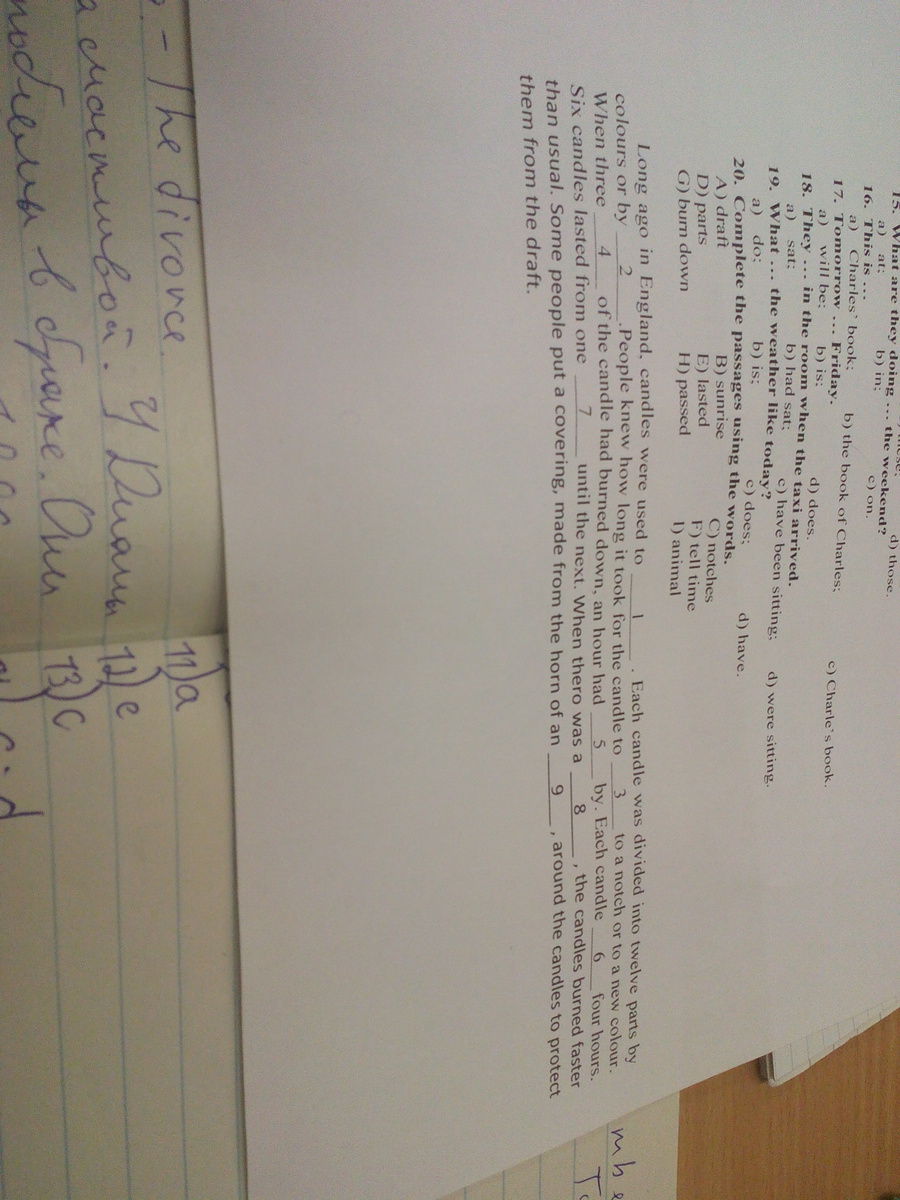 d) those.
15. What are they doing ... the weekend?
a) at; b) in; c) on.
16. This is ...
a) Charles' book; b) the book of Charles; c) Charle's book.
17. Tomorrow ... Friday.
a) will be; b) is; d) does.
18. They ... in the room when the taxi arrived.
a) sat; b) had sat; c) have been sitting; d) were sitting.
19. What ... the weather like today?
a) do; b) is; c) does; d) have.
20. Complete the passages using the words.
A) draft B) sunrise C) notches
D) parts E) lasted F) tell time
G) burn down H) passed I) animal
Long ago in England, candles were used to 1 . Each candle was divided into twelve parts by
colours or by 2 .People knew how long it took for the candle to 3 to a notch or to a new colour.
When three 4 of the candle had burned down, an hour had 5 by. Each candle 6 four hours.
Six candles lasted from one 7 until the next. When thero was a 8 , the candles burned faster
than usual. Some people put a covering, made from the horn of an 9 , around the candles to protect
them from the draft.
- The divorce
а счастливой. У Дианы
в браке. Они
11) a
12) e
13) c
c; d